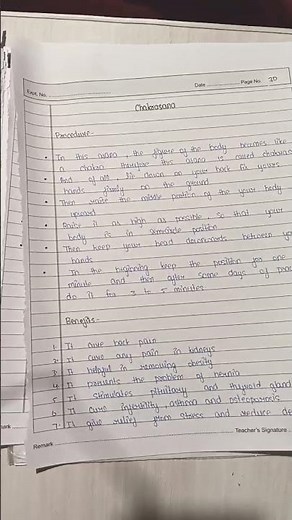 Expt. No.
Date
Page No. 20
Chakrasana
Procedure -
• In this asana, the figure of the body becomes like
a chakra therefore this asana is called chakras
• And of all, lie down on your back fix yours
hands firmly on the ground
• Then raise the middle portion of the your body
upward
• Raise it as high as possible, so that your
body is in semicircle position
• Then keep your head downwards between yo
hands
• In the beginning keep the position for one
minute and then after some days of prac
do it for 3 to 5 minutes
Benefits -
1. It cure back pain
2. It cure any pain in kidneys
3. It helpful in removing obesity
4. It prevents the problem of hernia
5. It stimulates pituitary and thyroid gland
6. It cure infertility, asthma and osteoporosis
7. It give relief from stress and reduce de
Teacher's Signature
Remark
mark